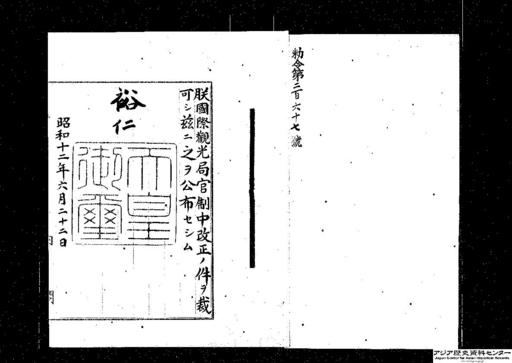 勅令第二百六十七號
朕國際觀光局官制中改正ノ件ヲ裁
可シ茲ニ之ヲ公布セシム
裕仁
天皇御璽
昭和十二年六月二十二日
アジア歴史資料センター
Japan Center for Asian Historical Records